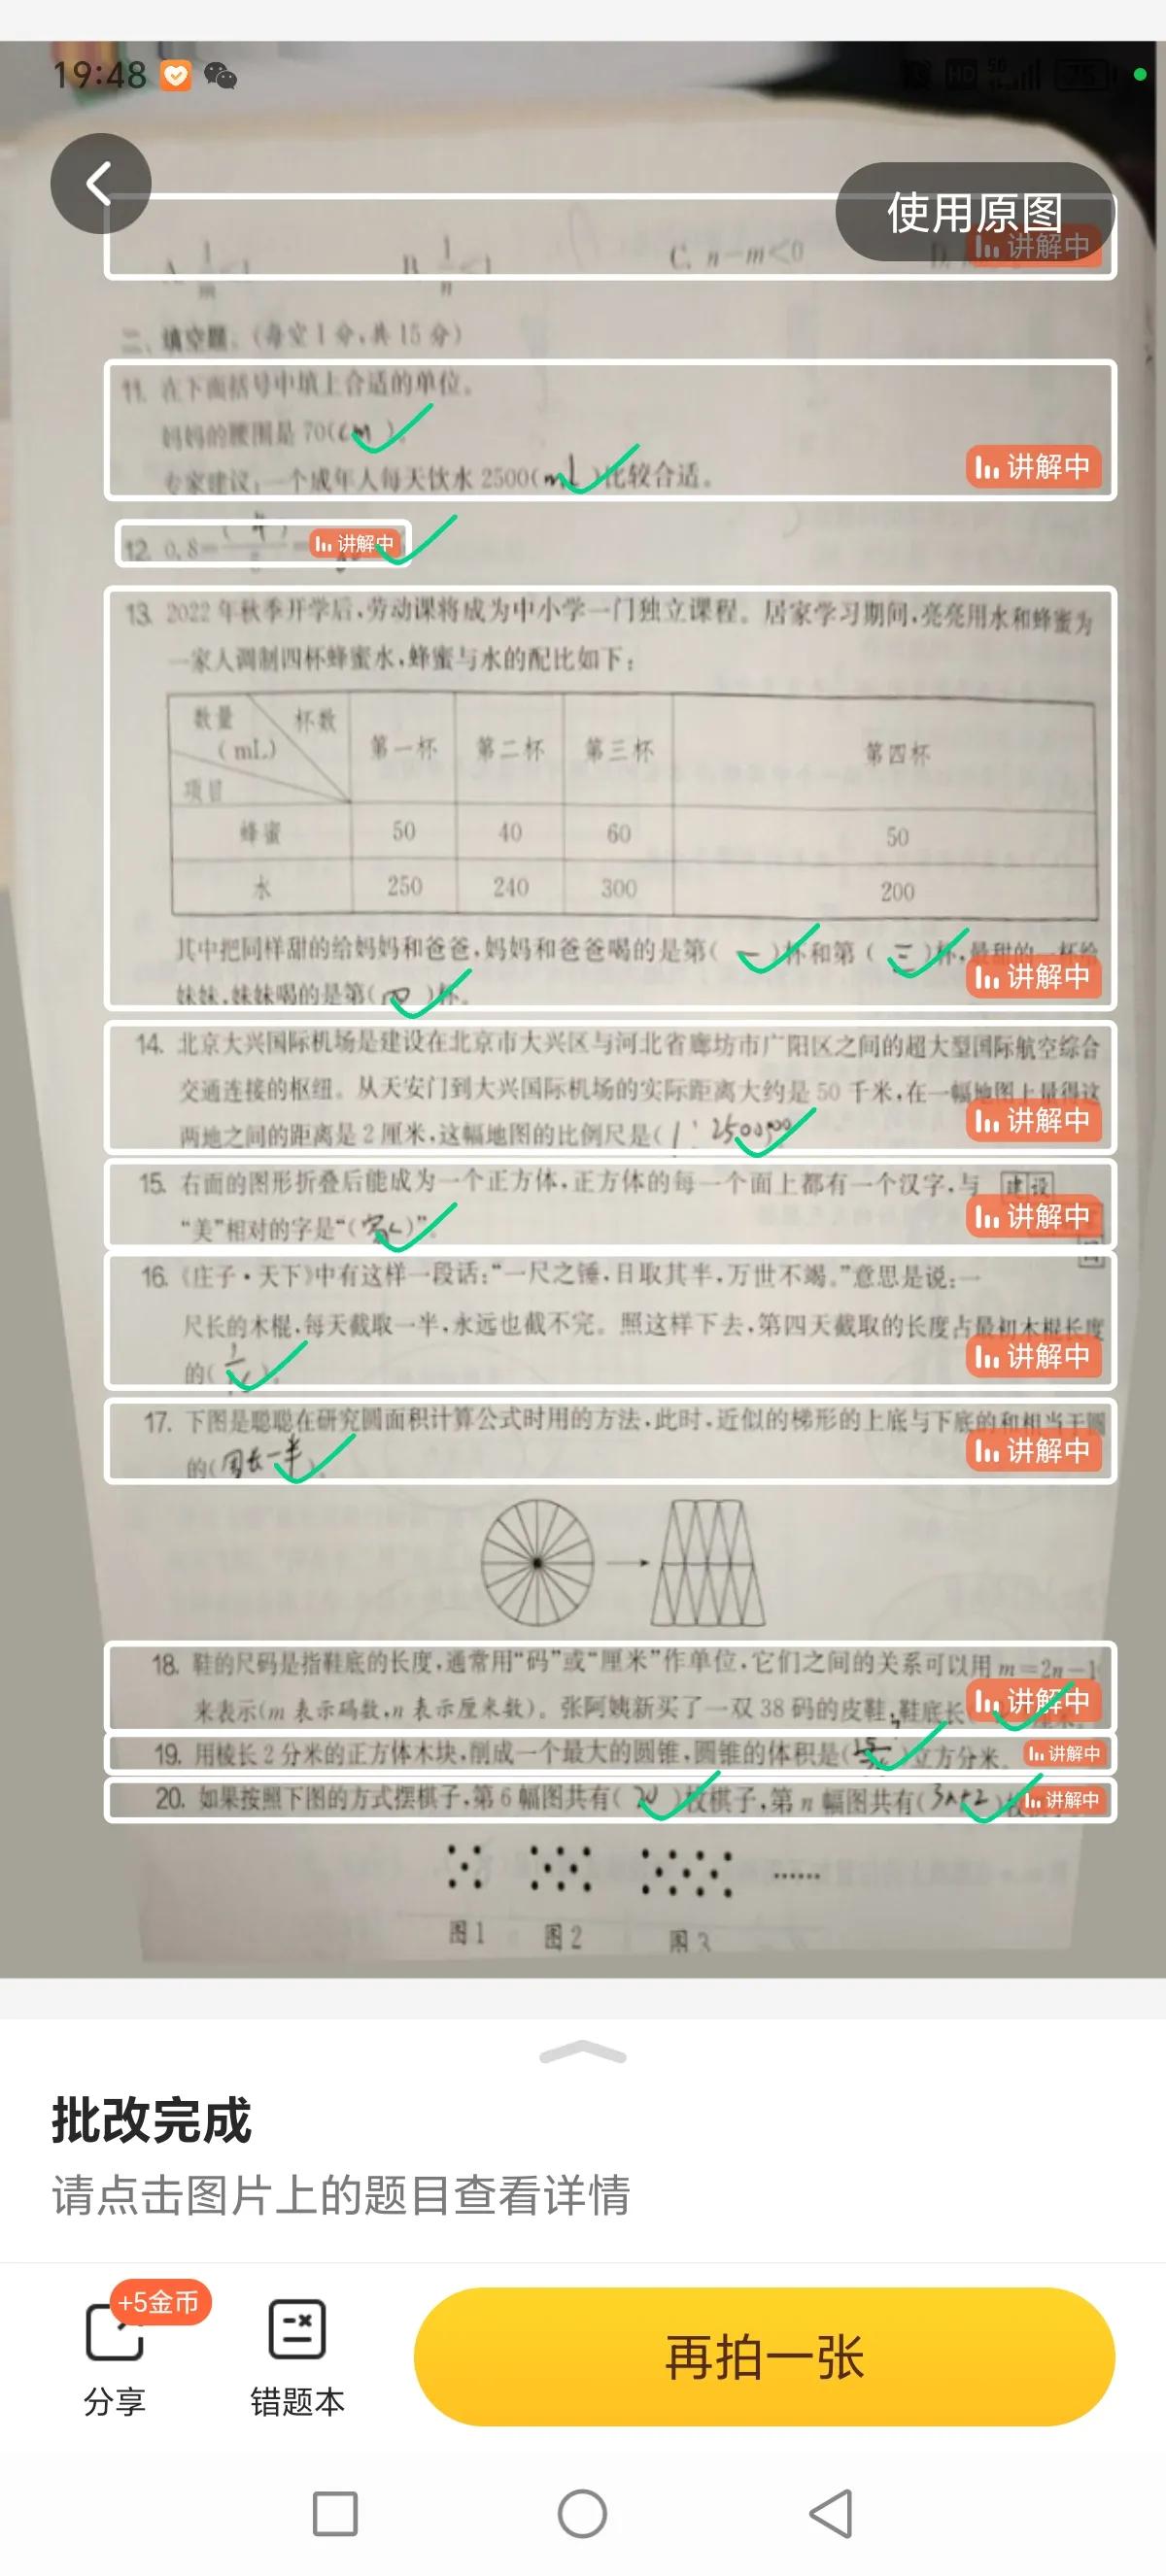 19:48
使用原图
C. n-m<0
讲解中
二、填空题。(每空1分,共15分)
11. 在下面括号中填上合适的单位。
妈妈的腰围是70(cm)。
专家建议:一个成年人每天饮水2500(mL)比较合适。
讲解中
12. 0.8=
讲解中
13. 2022年秋季开学后,劳动课将成为中小学一门独立课程。居家学习期间,亮亮用水和蜂蜜为
一家人调制四杯蜂蜜水,蜂蜜与水的配比如下:
数量(mL) 杯数 项目 第一杯 第二杯 第三杯 第四杯
蜂蜜 50 40 60 50
水 250 240 300 200
其中把同样甜的给妈妈和爸爸,妈妈和爸爸喝的是第(一)杯和第(三)杯,最甜的一杯给
妹妹,妹妹喝的是第(四)杯。
讲解中
14. 北京大兴国际机场是建设在北京市大兴区与河北省廊坊市广阳区之间的超大型国际航空综合
交通连接的枢纽。从天安门到大兴国际机场的实际距离大约是50千米,在一幅地图上量得这
两地之间的距离是2厘米,这幅地图的比例尺是(1:2500000
讲解中
15. 右面的图形折叠后能成为一个正方体,正方体的每一个面上都有一个汉字,与 建设
“美”相对的字是“( )”。
讲解中
16.《庄子·天下》中有这样一段话:“一尺之锤,日取其半,万世不竭。”意思是说:一
尺长的木棍,每天截取一半,永远也截不完。照这样下去,第四天截取的长度占最初木棍长度
的( )。
讲解中
17. 下图是聪聪在研究圆面积计算公式时用的方法,此时,近似的梯形的上底与下底的和相当于圆
的(周长一半)。
讲解中
18. 鞋的尺码是指鞋底的长度,通常用“码”或“厘米”作单位,它们之间的关系可以用m=2n-1
来表示(m表示码数,n表示厘米数)。张阿姨新买了一双38码的皮鞋,鞋底长(
讲解中
19. 用棱长2分米的正方体木块,削成一个最大的圆锥,圆锥的体积是( )立方分米。
讲解中
20. 如果按照下图的方式摆棋子,第6幅图共有(20)枚棋子,第n幅图共有(3n+2)枚
讲解中
……
图1 图2 图3
批改完成
请点击图片上的题目查看详情
+5金币
分享
错题本
再拍一张